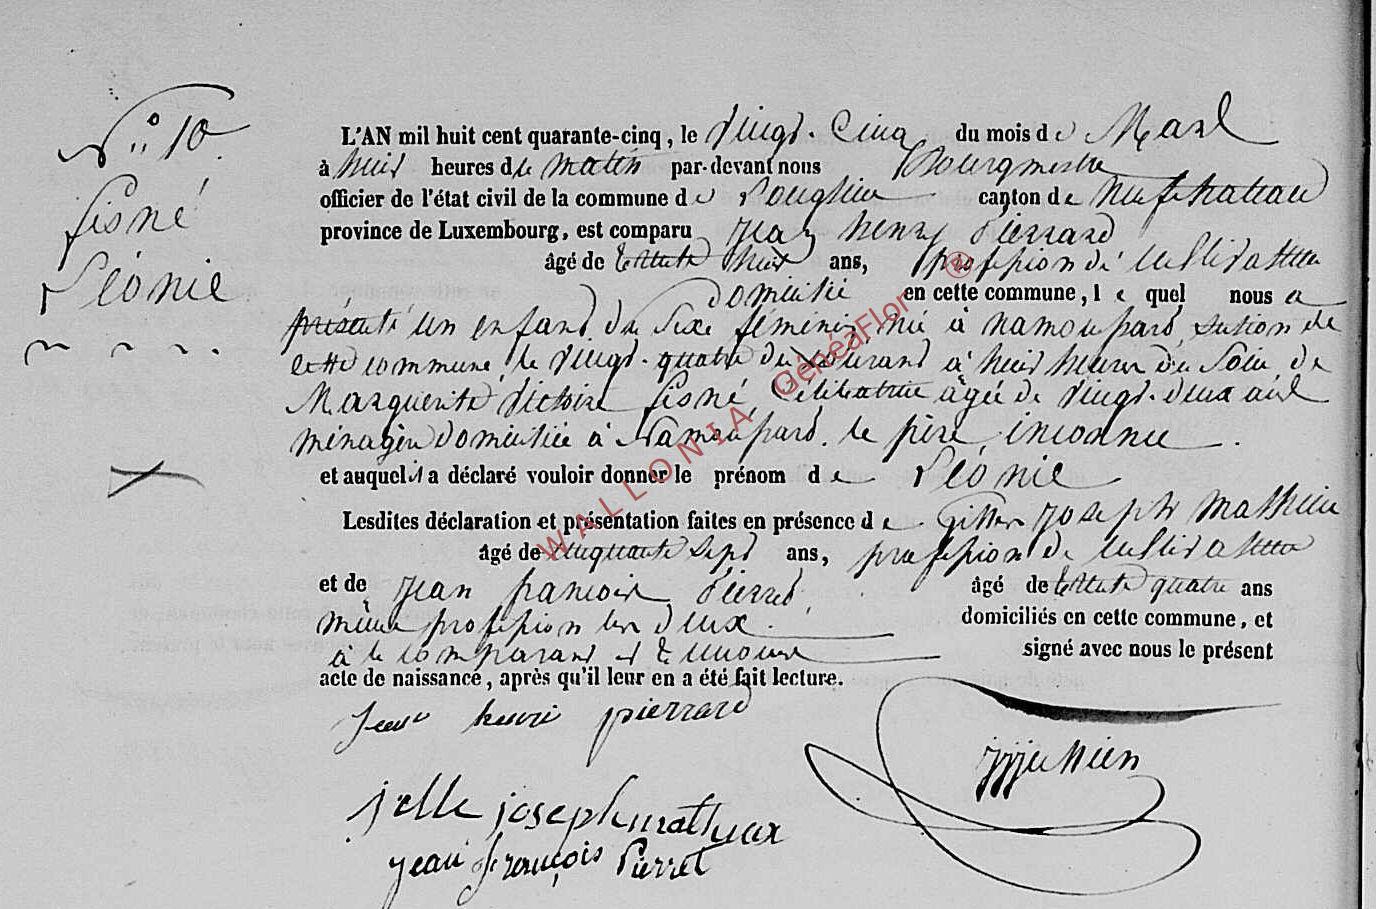 N° 10
Lisné
Léonie
L'AN mil huit cent quarante-cinq, le vingt-cinq du mois de Mars
à huit heures du matin par-devant nous Bourgmestre
officier de l'état civil de la commune de canton de Neufchateau
province de Luxembourg, est comparu Jean henry Pierrard
âgé de trente huit ans, profession de cultivateur
domicilié en cette commune, le quel nous a
présenté un enfant du sexe féminin né à Namoupard, section de
cette commune, le vingt-quatre du courant à huit heures du soir, de
Marguerite Victoire Lisné, Célibataire agée de vingt-deux ans
ménagère domiciliée à Namoupard. le père inconnu.
et auquel il a déclaré vouloir donner le prénom de Léonie
Lesdites déclaration et présentation faites en présence de Joseph Mathieu
âgé de cinquante sept ans, profession de cultivateur
et de Jean francois Pierret, âgé de trente quatre ans
même profession les deux domiciliés en cette commune, et
à le comparant et témoins signé avec nous le présent
acte de naissance, après qu'il leur en a été fait lecture.
Jean henri pierrard
joseph mathieux
jean françois Pierret
WALLONIA GénéaFlor ®